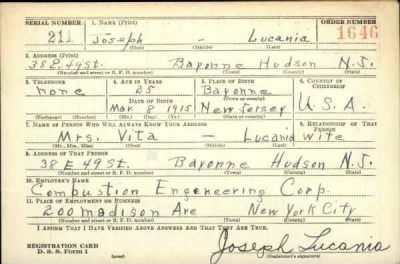 SERIAL NUMBER 1. NAME (Print) ORDER NUMBER
211 Joseph — Lucania 1646
(First) (Middle) (Last)
2. ADDRESS (Print)
38 E 49 St. Bayonne Hudson N.J.
(Number and street or R. F. D. number) (Town) (County) (State)
3. TELEPHONE 4. AGE IN YEARS 5. PLACE OF BIRTH 6. COUNTRY OF CITIZENSHIP
none 25 Bayonne
DATE OF BIRTH (Town or county)
Mar 8 1915 New Jersey U.S.A.
(Exchange) (Number) (Mo.) (Day) (Yr.) (State or country)
7. NAME OF PERSON WHO WILL ALWAYS KNOW YOUR ADDRESS 8. RELATIONSHIP OF THAT PERSON
Mrs. Vita — Lucania wife
(Mr., Mrs., Miss) (First) (Middle) (Last)
9. ADDRESS OF THAT PERSON
38 E 49 St. Bayonne Hudson N.J.
(Number and street or R. F. D. number) (Town) (County) (State)
10. EMPLOYER'S NAME
Combustion Engeneering Corp.
11. PLACE OF EMPLOYMENT OR BUSINESS
200 Madison Ave New York City
(Number and street or R. F. D. number) (Town) (County) (State)
I AFFIRM THAT I HAVE VERIFIED ABOVE ANSWERS AND THAT THEY ARE TRUE.
REGISTRATION CARD
D. S. S. Form 1 (over) Joseph Lucania
(Registrant's signature)